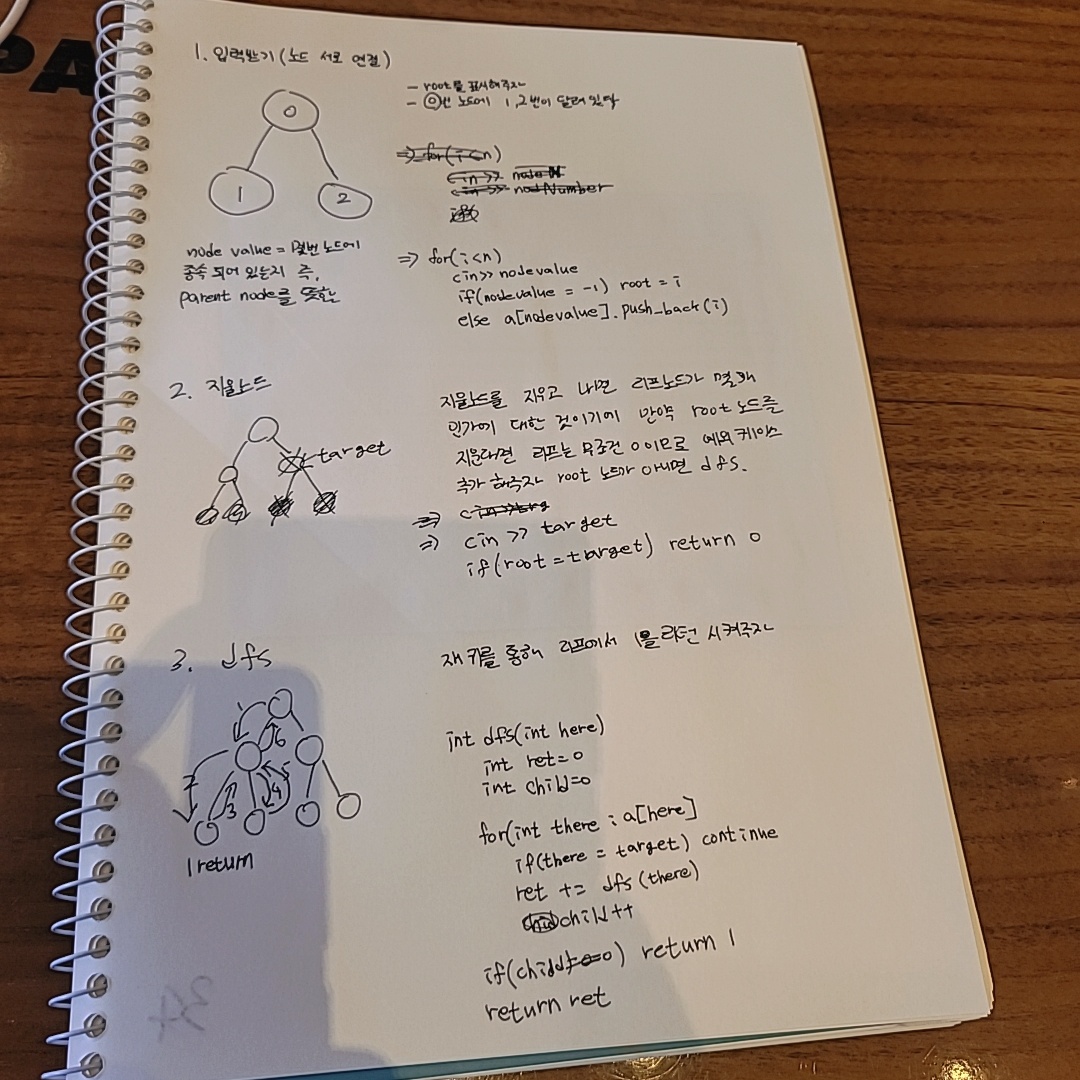 PA
1. 입력받기 (노드 서로 연결)
0
1
2
- root를 표시해주자
- ⓪번 노드에 1, 2번이 달려 있다
⇒ for(i<n)
cin >> node
cin >> nodNumber
node value = 몇번 노드에
종속 되어 있는지 즉,
parent node를 뜻함
⇒ for(i<n)
cin>> nodevalue
if(nodevalue = -1) root = i
else a[nodevalue].push_back(i)
2. 지울노드
target
지울노드를 지우고 나면 리프노드가 몇개
인가에 대한 것이기에 만약 root 노드를
지운다면 리프는 무조건 0이므로 예외 케이스
추가 해주자 root 노드가 아니면 dfs.
⇒
⇒ cin >> target
if(root = target) return 0
3. dfs
1
2
3
4
5
6
1 return
재귀를 통해 리프에서 1을 리턴 시켜주자
int dfs(int here)
int ret=0
int child=0
for(int there : a[here]
if(there = target) continue
ret += dfs(there)
child++
if(child==0) return 1
return ret